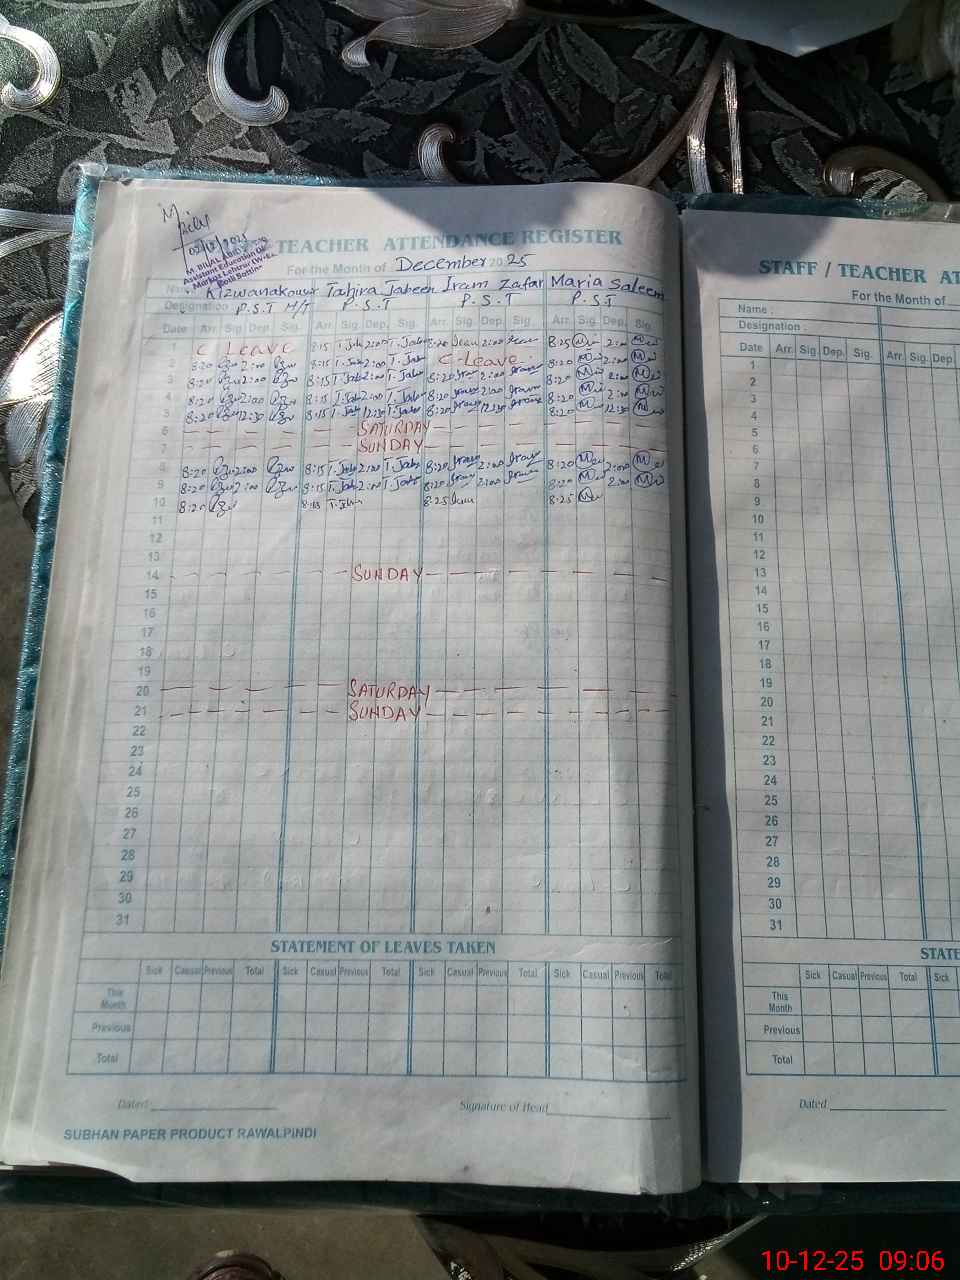 02/12/2025
M BILAL ABID
Assistant Education Officer
Markaz Lehtrar (W-EE)
Kotli Sattian
TEACHER ATTENDANCE REGISTER
For the Month of December 2025
Rizwana kousar Tahira Jabeen Iram Zafar Maria Saleem
Designation P.S.T H/T P.S.T P.S.T P.S.T
Date Arr. Sig. Dep. Sig. Arr. Sig. Dep. Sig. Arr. Sig. Dep. Sig. Arr. Sig. Dep. Sig.
1 C Leave 8:15 T.Jab 2:00 T.Jab 8:20 Iram 2:00 Iram 8:25 2:00
2 8:20 2:00 8:15 T.Jab 2:00 T.Jab C-Leave 8:20 2:00
3 8:20 2:00 8:15 T.Jab 2:00 T.Jab 8:20 Iram 2:00 Iram 8:20 2:00
4 8:20 2:00 8:15 T.Jab 2:00 T.Jab 8:20 Iram 2:00 Iram 8:20 2:00
5 8:20 12:30 8:15 T.Jab 12:30 T.Jab 8:20 Iram 12:30 Iram 8:20 12:30
6 SATURDAY
7 SUNDAY
8 8:20 2:00 8:15 T.Jab 2:00 T.Jab 8:20 Iram 2:00 Iram 8:20 2:00
9 8:20 2:00 8:15 T.Jab 2:00 T.Jab 8:20 Iram 2:00 Iram 8:20 2:00
10 8:20 8:15 T.Jab 8:25 Iram 8:25
11
12
13
14 SUNDAY
15
16
17
18
19
20 SATURDAY
21 SUNDAY
22
23
24
25
26
27
28
29
30
31
STATEMENT OF LEAVES TAKEN
Sick Casual Previous Total Sick Casual Previous Total Sick Casual Previous Total Sick Casual Previous Total
This Month
Previous
Total
Dated Signature of Head
SUBHAN PAPER PRODUCT RAWALPINDI
STAFF / TEACHER AT
For the Month of
Name :
Designation :
Date Arr. Sig. Dep. Sig. Arr. Sig. Dep.
1
2
3
4
5
6
7
8
9
10
11
12
13
14
15
16
17
18
19
20
21
22
23
24
25
26
27
28
29
30
31
STATE
Sick Casual Previous Total Sick
This Month
Previous
Total
Dated
10-12-25 09:06